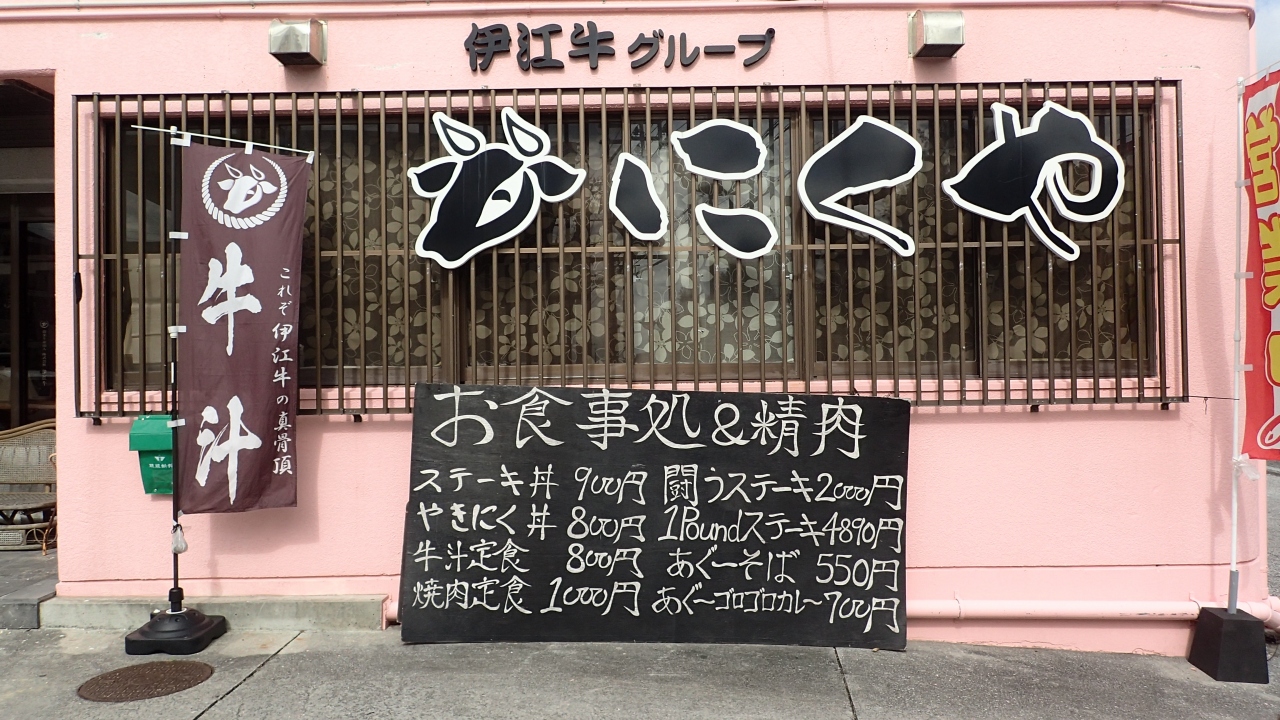 伊江牛グループ
にくや
牛汁
これぞ伊江牛の真骨頂
お食事処&精肉
ステーキ丼 900円
やきにく丼 800円
牛汁定食 800円
焼肉定食 1000円
闘うステーキ2000円
1Poundステーキ4890円
あぐーそば 550円
あぐ〜ゴロゴロカレ〜700円
営業中